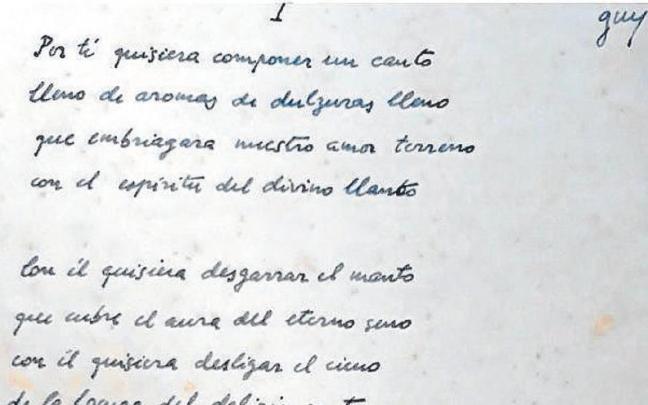 I
guy
Por ti quisiera componer un canto
lleno de aromas de dulzuras lleno
que embriagara nuestro amor terreno
con el espíritu del divino llanto
Con él quisiera desgarrar el manto
que cubre el aura del eterno seno
con él quisiera desligar el cieno
de la